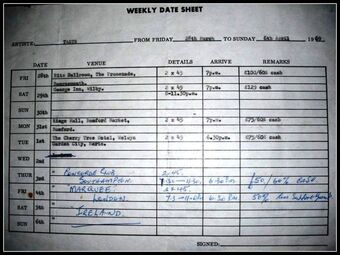 WEEKLY DATE SHEET
ARTISTE: TASTE FROM FRIDAY 28th March TO SUNDAY 6th April 1969
DATE VENUE DETAILS ARRIVE REMARKS
FRI 28th Ritz Ballroom, The Promenade, 2 x 45 7p.m. £100/60% cash
Bournemouth.
SAT 29th George Inn, Wilby. 2 x 45 7p.m. £125 cash
8-11.30p.m.
SUN 30th
MON 31st Kings Hall, Romford Market, 2 x 45 7p.m. £75/60% cash
Romford.
TUE 1st The Cherry Tree Hotel, Welwyn 2 x 45 6.30p.m. £75/60% cash
Garden City, Herts.
WED 2nd
THUR 3rd " CLUB 2.45.
SOUTHAMPTON. 7.30 → 11.30. 6.30 PM £50/60% CASH
FRI 4th " MARQUEE. 2 x 45
" LONDON. 6.30 PM 50%
SAT 5th " IRELAND.
SUN 6th "
SIGNED: